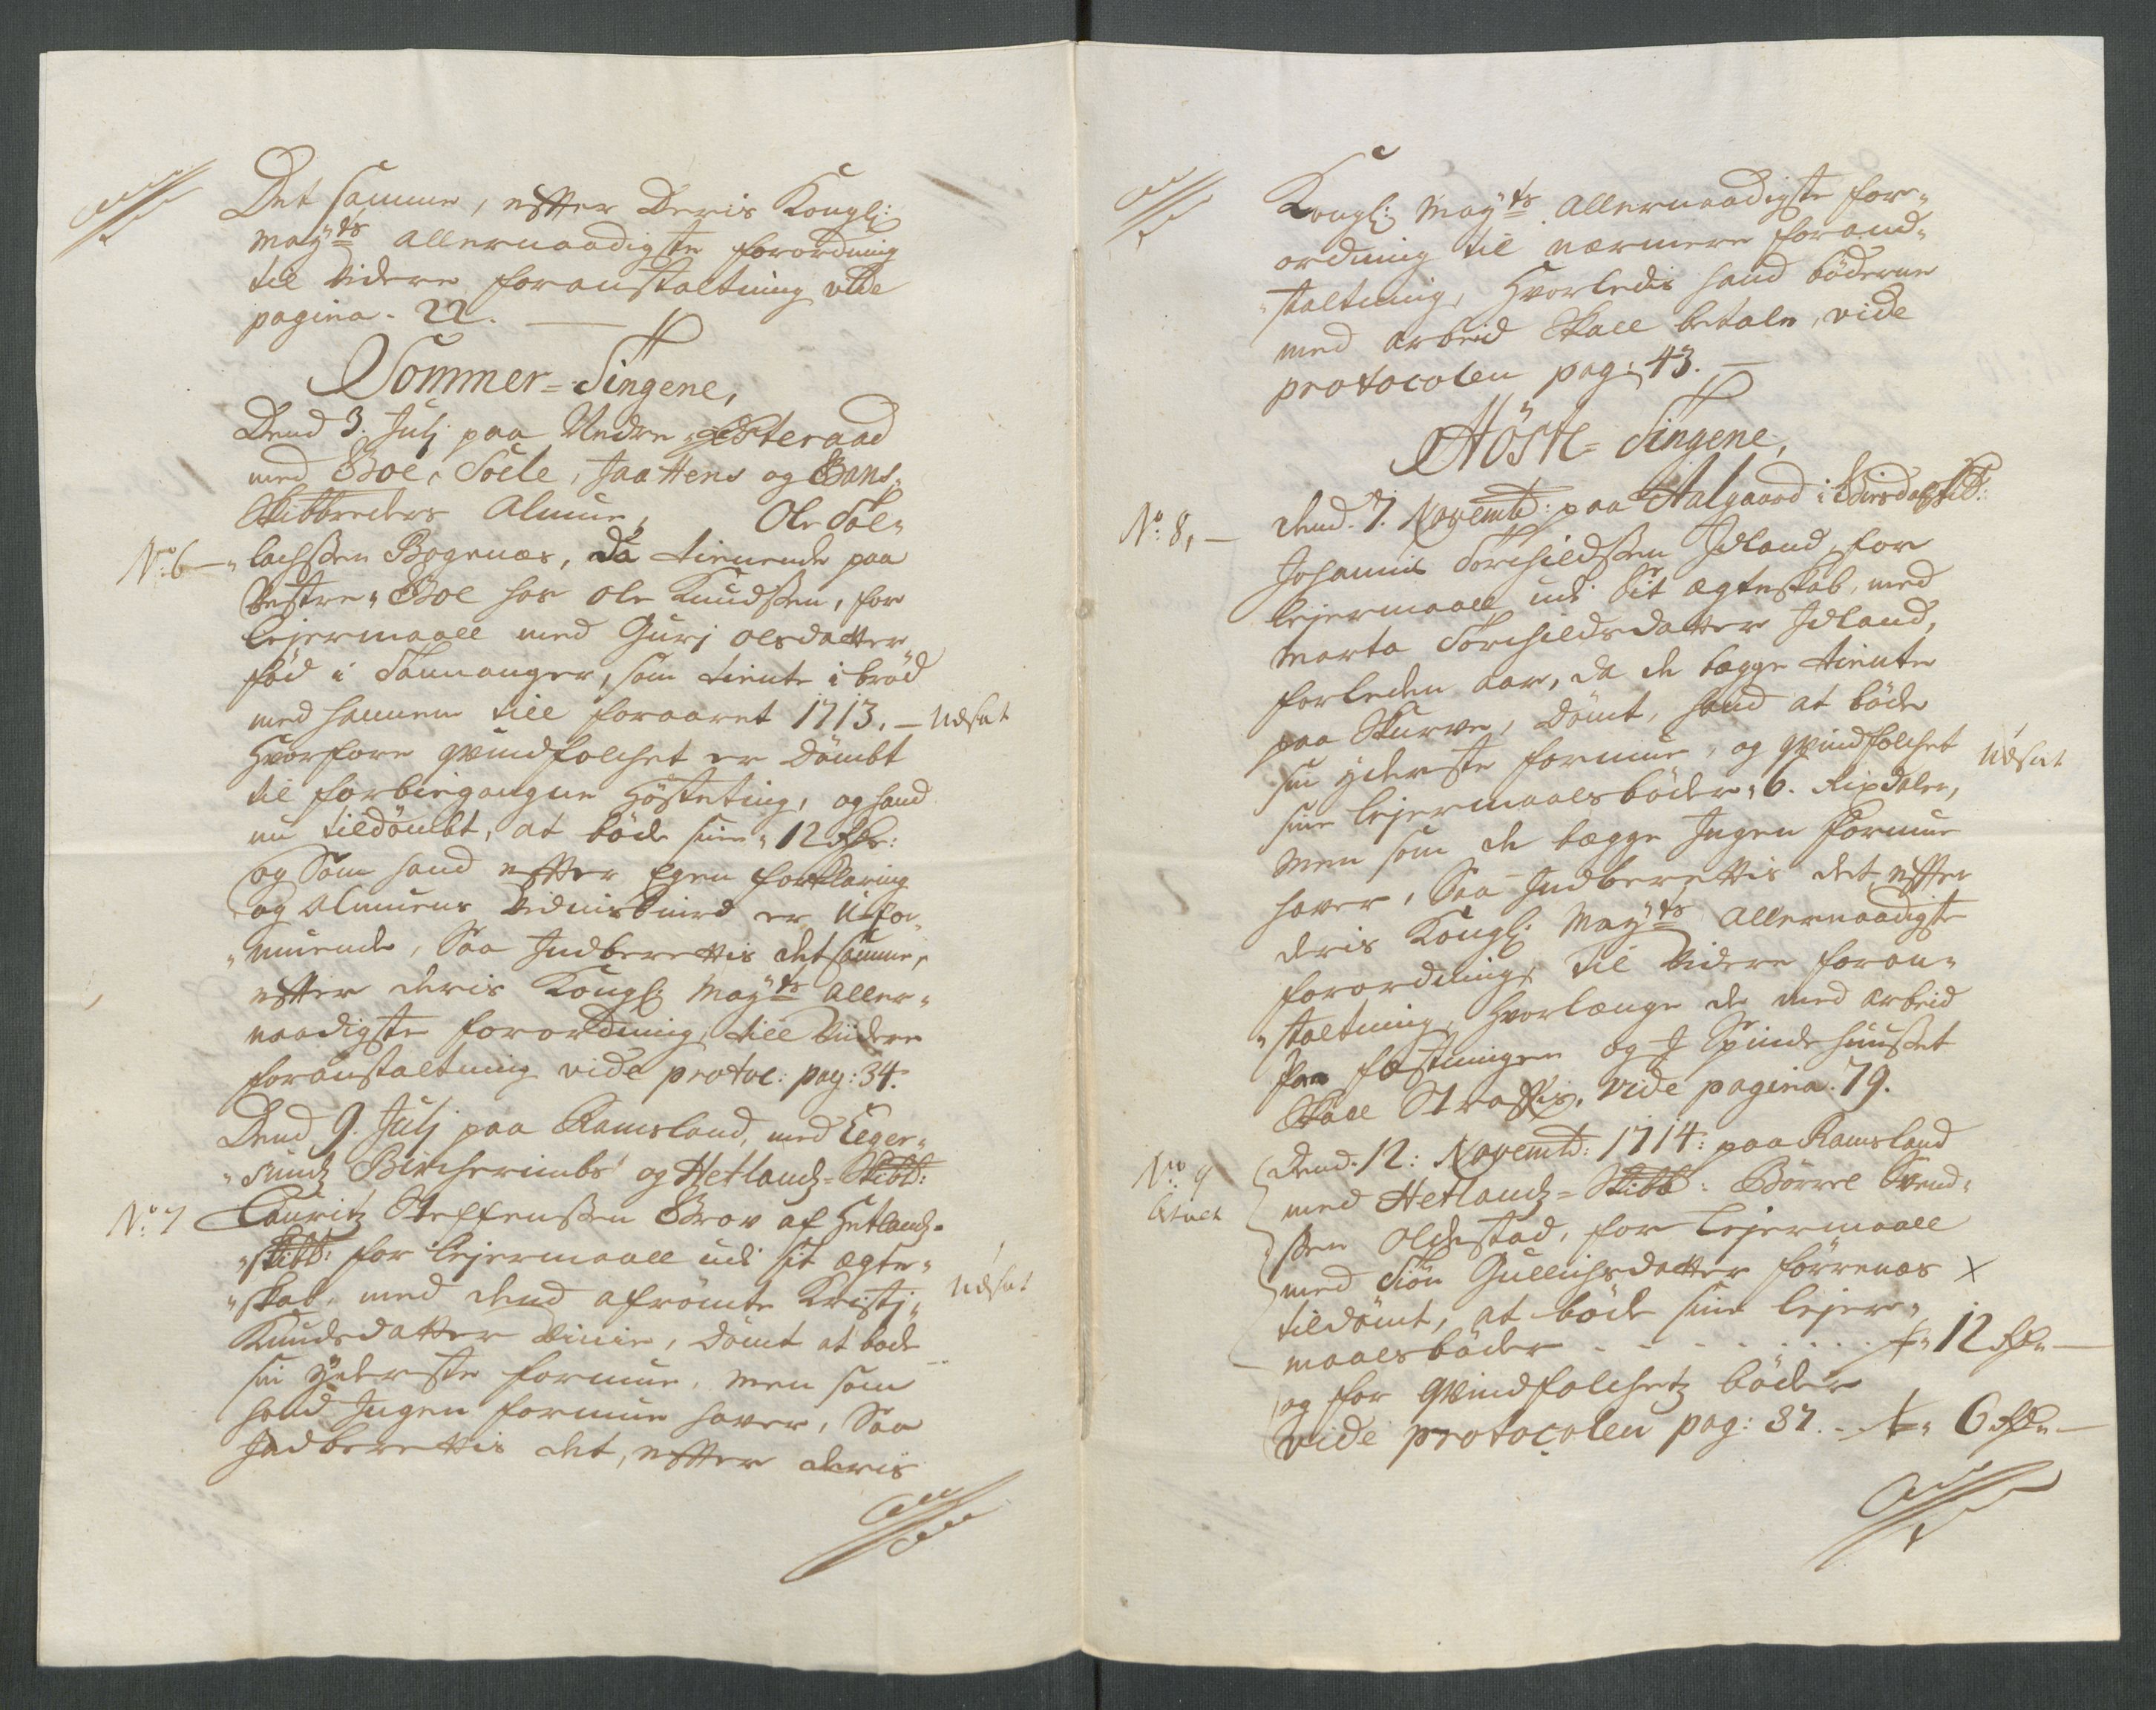 Det samme, efter Deris Kongl:
May:ts allernaadigste forordning
til videre foranstaltning vide
pagina. 22.
Sommer=Tingene,
Dend 3. Julj paa Nedre Østeraad
med Boe, Soele, Jaattens og Gans
Skibbreders Almue, Ole Sol-
No: 6 lachssen Bogenæs, da tienende paa
Vestre=Boe hos Ole Knudssen, for
lejermaall med Gurj Olsdatter
fød i Tannanger, som tiente i brød
med hannem till foraaret 1713. — Udsat
Hvorfore qvindfolchet er dømbt
til forbiegangne Høsteting, og hand
nu tildømbt, at bøde sine 12 Rdr:
og Som hand efter Egen forklaring
og Almuens Vidnisbiurd er Ufor-
"muende, Saa Indberettis det samme,
efter deris Kongl: May:ts aller-
naadigste forordning, till Videre
foranstaltning vide protoc: pag: 34.
Dend 9. Julj paa Ramsland, med Eger-
"sundz Bircherimbs og Hetlandz=Skibb:
No: 7 Lauritz Steffenssen Brov af Hetlandz-
"skibb: for lejermaall udi sit ægte-
"skab, med dend afrømte Kristj- Udsat
Knudsdatter , dømt at bøde
sin Yderste formue, men som
hand Ingen formue haver, Saa
Indberettis det, efter deris
Kongl: May:ts allernaadigste for-
ordning til nærmere forand-
"staltning, Hvorledis hand bøderne
med arbeid Skall betale, vide
protocolen pag: 43.
Høste=Tingene,
No: 8, — dend. 7. Novemb: paa Aalgaard i Skib:
Johannis Torchildssen Idland, for
lejermaall udi Sit ægteskab, med
Marta Torchildsdatter Idland,
forleden aar, da de begge tiente
paa Skurve, Dømt, hand at bøde
sin yderste formue, og qvindfolchet Udsat
sine lejermaals bøder, 6. Rixdaler,
Men som de begge Ingen Formue
haver, Saa Indberettis det efter
deris Kongl: May:ts allernaadigste
forordning, til Videre foran-
"staltning, Hvorlænge de med arbeid
paa festningen og J Spindehuusset
Skall Straffis, vide pagina. 79.
No: 9 Dend. 12: Novemb: 1714: paa Ramsland
med Hetlandz=Skibb: Børre Svend-
sen Oldestad, for lejermaall
med Siøn Gullichsdatter Førrenæs x
tildømt, at bøde sine lejer-
maalsbøder . . . . . . . 12 Rdr —
og for qvindfolchetz bøder
vide protocolen pag: 87. - 6 Rdr —